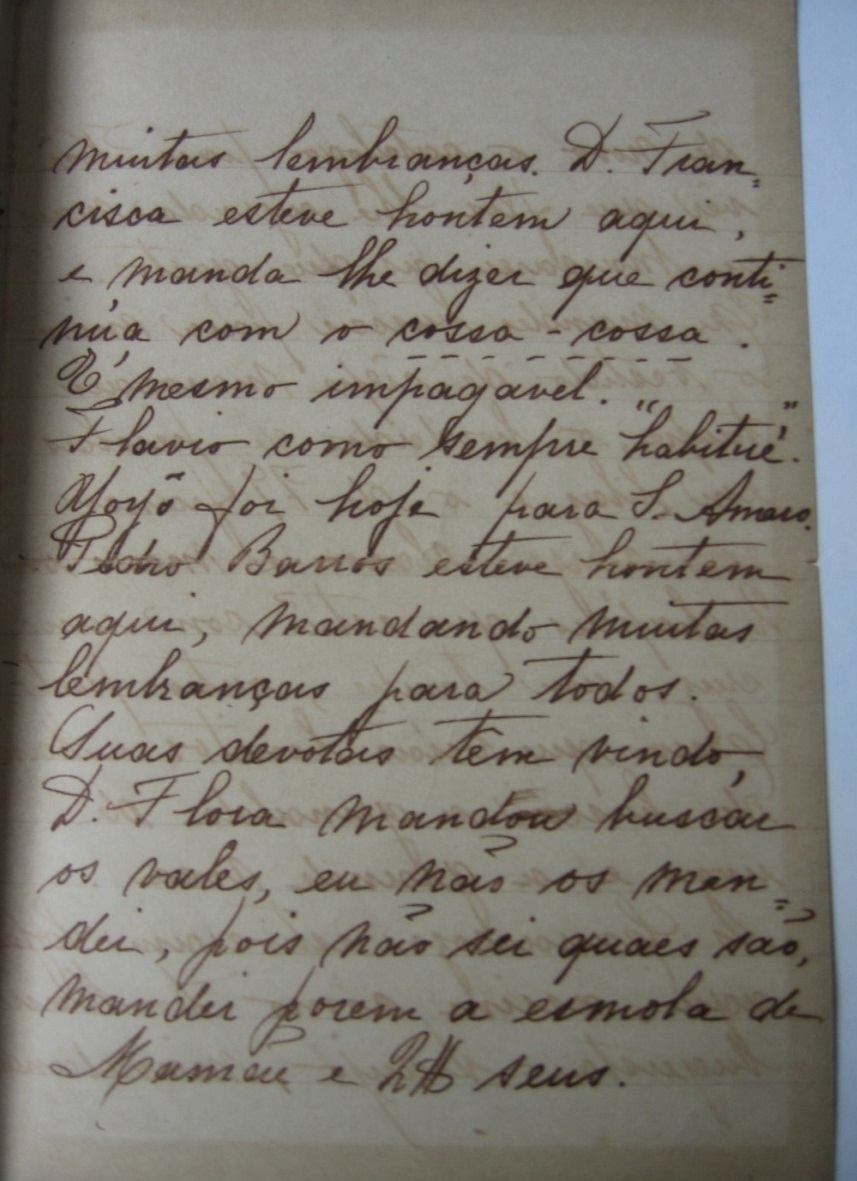 muitas lembranças. D. Fran=
cisca esteve hontem aqui,
e manda lhe dizer que conti=
núa com o cossa-cossa.
É mesmo impagavel.
Flavio como sempre "habitué".
Yoyô foi hoje para S. Amaro.
Pedro Barros esteve hontem
aqui, mandando muitas
lembranças para todos.
Suas devotas têm vindo,
D. Flora mandou buscar
os vales, eu não os man=
dei, pois não sei quaes são,
mandei porem a esmola de
Mamãe e 2$ seus.